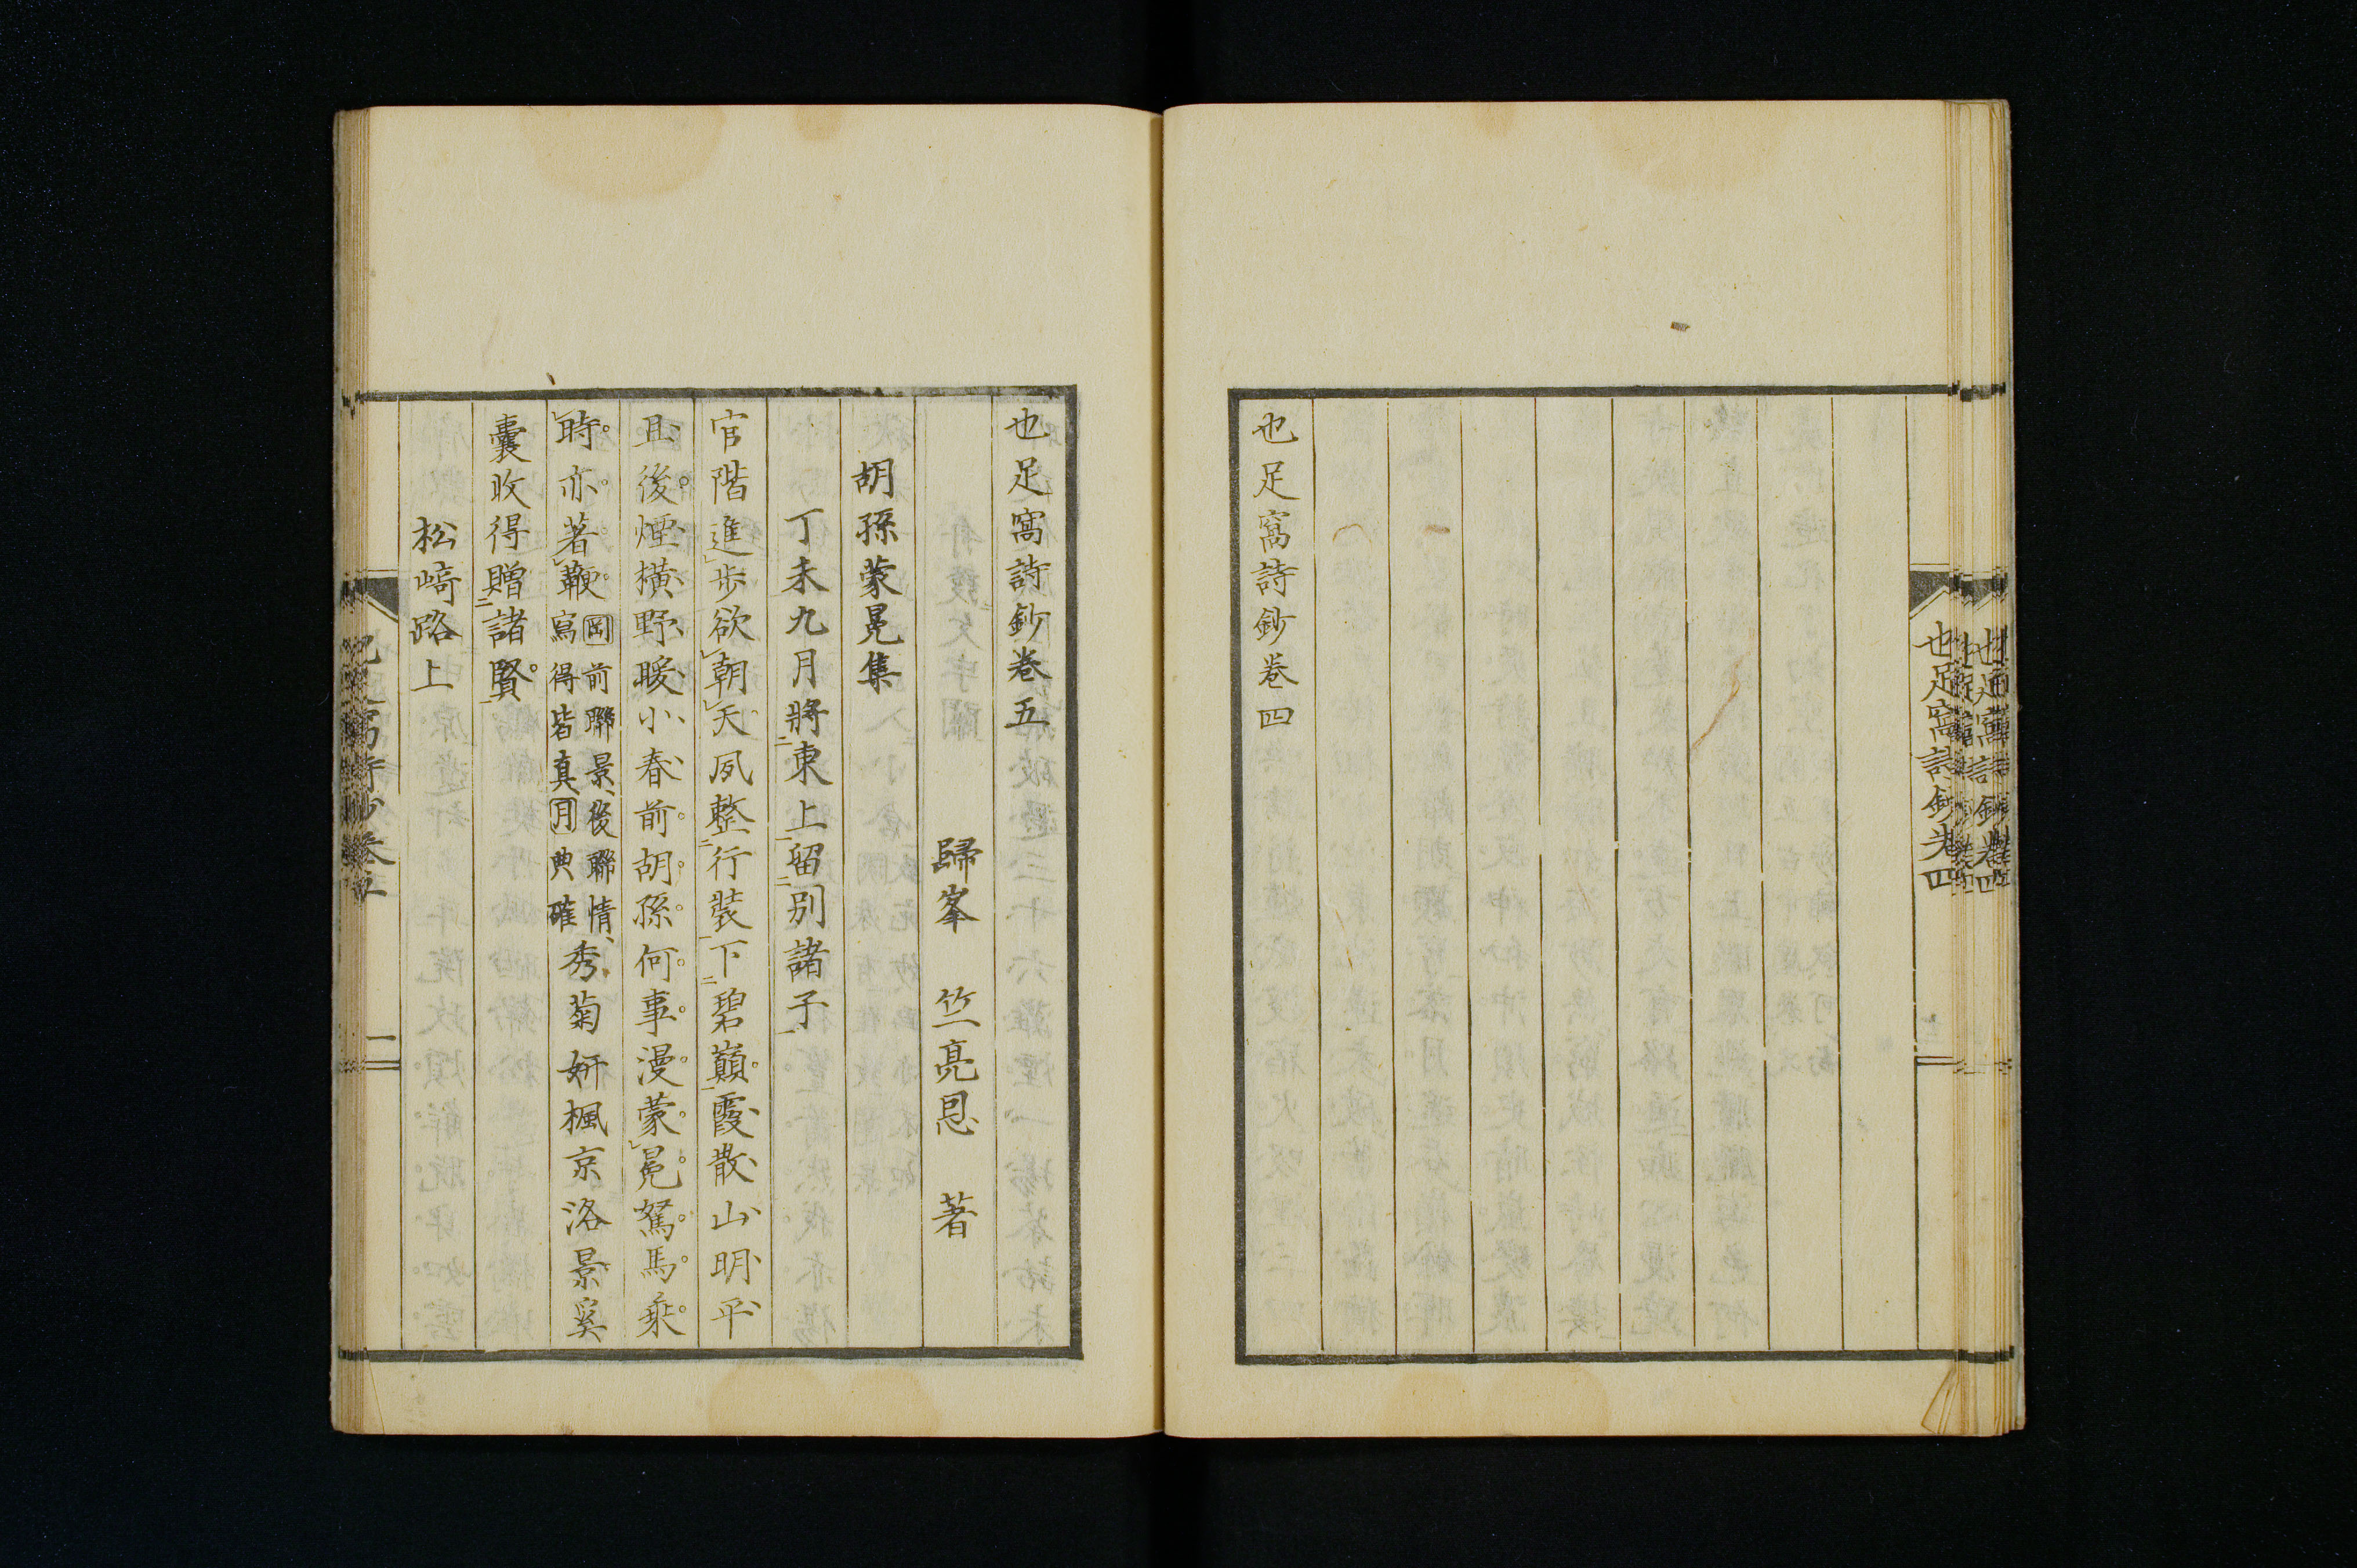 也足窩詩鈔卷四
也足窩詩鈔卷四
也足窩詩鈔卷五
歸峯 竺亮恩 著
胡孫蒙冕集
丁未九月將東上留別諸子
官階進步欲朝天夙整行裝下碧巓霞散山明平
且後煙橫野暖小春前胡孫何事漫蒙冕駑馬乘
時亦著鞭岡前聯景後聯情
寫得皆真月典確秀菊妍楓京洛景奚
囊收得贈諸賢
松﨑路上
一